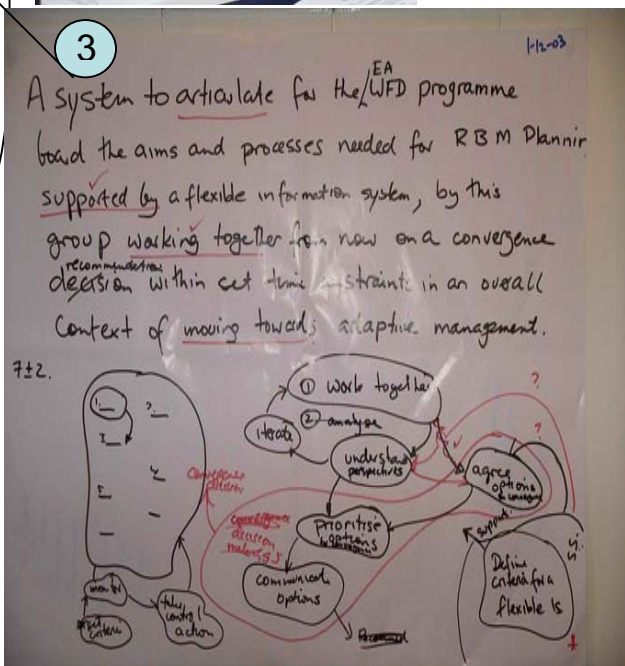 3
1-12-03
EA
A system to articulate for the WFD programme
board the aims and processes needed for RBM Plannin
supported by a flexible information system, by this
group working together from now on a convergence
recommendation
decision within set time constraints in an overall
Context of moving towards adaptive management.
7±2.
① work together
② analyse
iterate
understand
perspectives
agree
options
prioritise
options
communicate
options
Convergence
decision
convergence
decision
support
Define
criteria for a
flexible IS
monitor
criteria
take
control
action
1.
2.
3
?
?